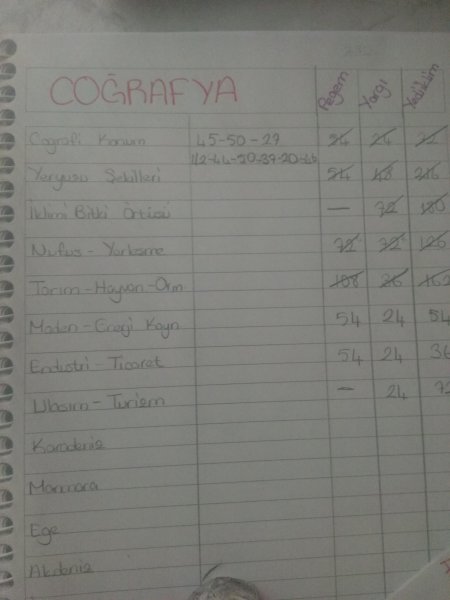 COĞRAFYA Pegem Yargı Yediiklim
Coğrafi Konum 45-50-27 54 24 72
42-44-50-39-20-46
Yeryüzü Şekilleri 54 48 216
İklimi Bitki Örtüsü — 72 180
Nüfus - Yerleşme 72 72 126
Tarım-Hayvan-Orm 108 26 162
Maden-Enerji Kayn 54 24 54
Endüstri - Ticaret 54 24 36
Ulaşım - Turizm — 24 72
Karadeniz
Marmara
Ege
Akdeniz